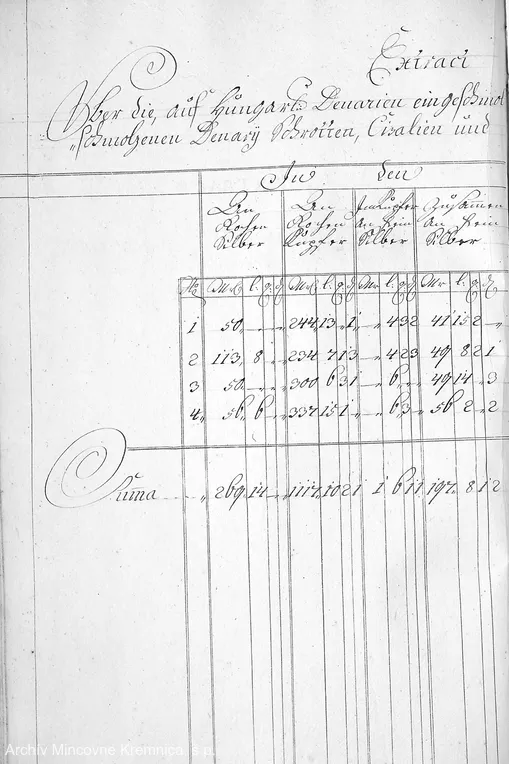 Extract
Über die, auf Hungar: Denarien eingeschmol
schmolzenen Denary Schrotten, Cisalien und
In den
An Rohen Silber An Rohen Kupfer Im Kupfer An Fein Silber Zusamen An Fein Silber
No Mr l. q. d Mr l. q. d Mr l. q. d Mr l. q. d
1 50 - - - 244 13 - 1 - 4 3 2 41 15 2 -
2 113 8 - - 234 7 1 3 - 4 2 3 49 8 2 1
3 50 - - - 300 6 3 1 - 6 - - 49 14 - 3
4 56 6 - - 337 15 1 - - 6 3 - 56 2 - 2
Suma 269 14 - - 1117 10 2 1 1 6 1 1 197 8 1 2
Archív Mincovne Kremnica, š.p.